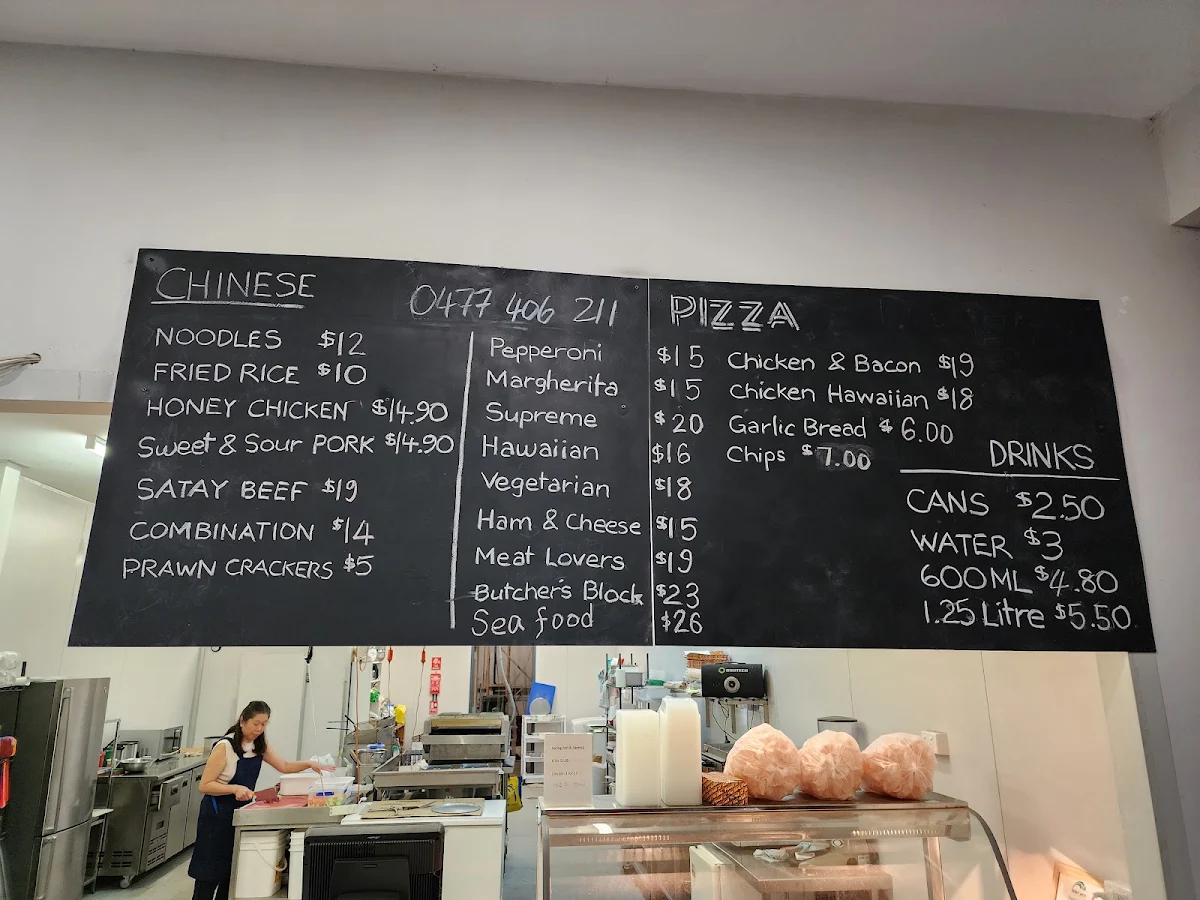 CHINESE
0477 406 211
NOODLES $12
FRIED RICE $10
HONEY CHICKEN $14.90
Sweet & Sour PORK $14.90
SATAY BEEF $19
COMBINATION $14
PRAWN CRACKERS $5
PIZZA
Pepperoni $15
Margherita $15
Supreme $20
Hawaiian $16
Vegetarian $18
Ham & Cheese $15
Meat Lovers $19
Butcher's Block $23
Sea food $26
Chicken & Bacon $19
Chicken Hawaiian $18
Garlic Bread $6.00
Chips $7.00
DRINKS
CANS $2.50
WATER $3
600ML $4.80
1.25 Litre $5.50